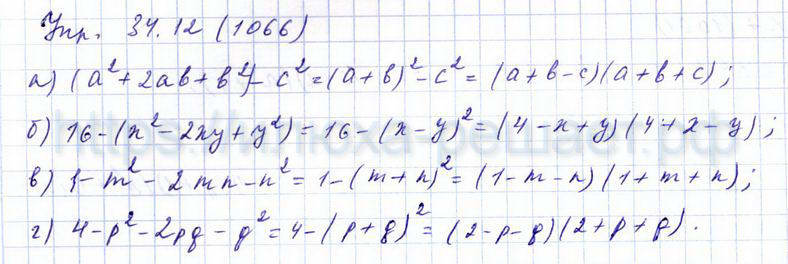 Упр. 34.12 (1066)
а) (a² + 2ab + b²) - c² = (a + b)² - c² = (a + b - c)(a + b + c);
б) 16 - (x² - 2xy + y²) = 16 - (x - y)² = (4 - x + y)(4 + x - y);
в) 1 - m² - 2mn - n² = 1 - (m + n)² = (1 - m - n)(1 + m + n);
г) 4 - p² - 2pq - q² = 4 - (p + q)² = (2 - p - q)(2 + p + q).